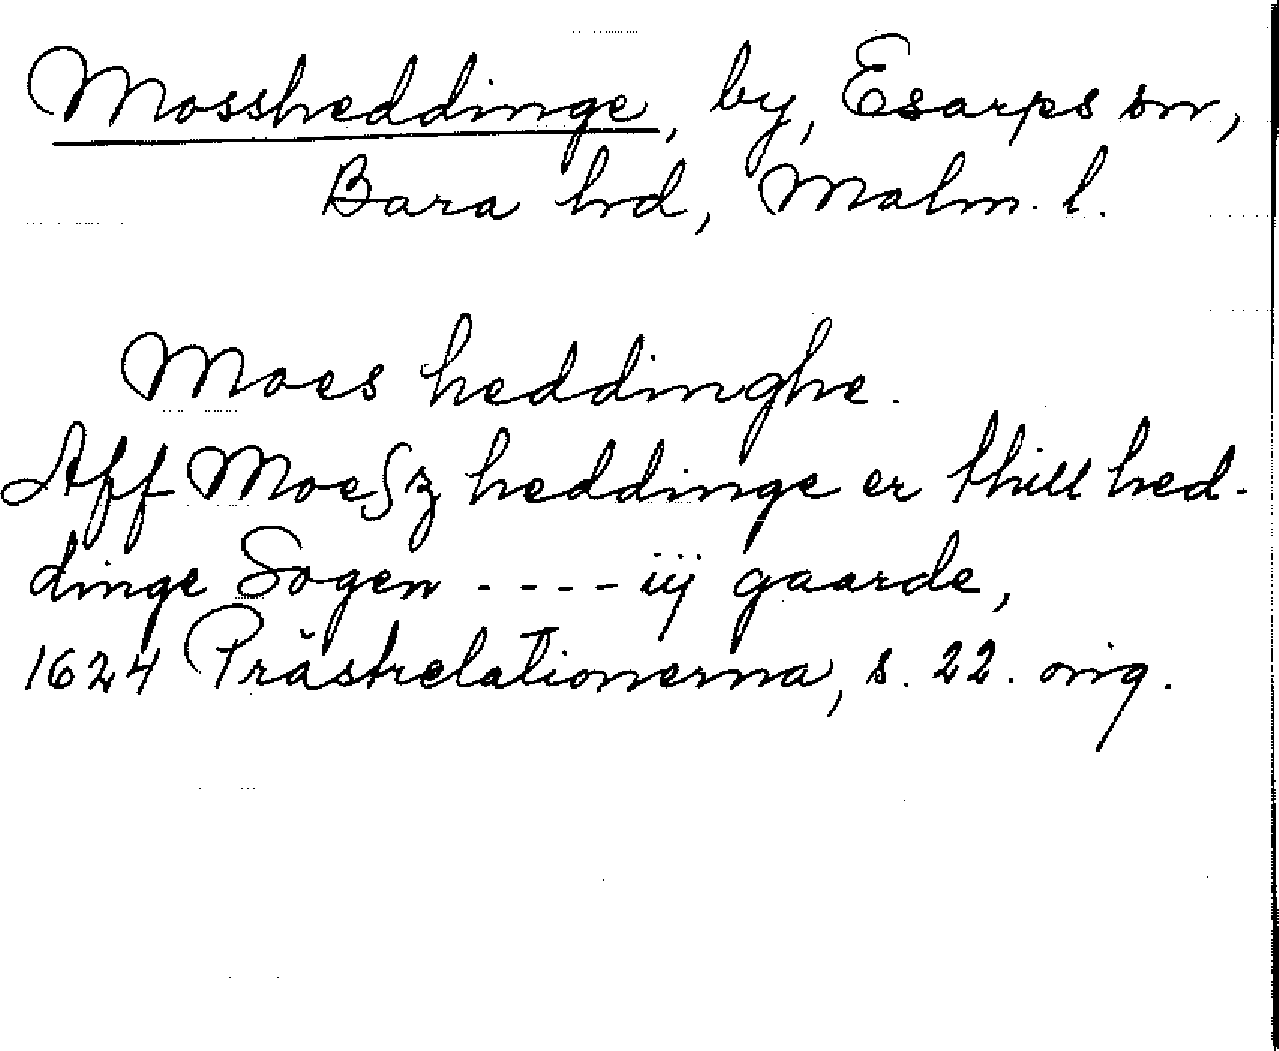 Mossheddinge, by, Esarps sn,
Bara hd, Malm. l.
Moes heddinghe.
Aff Moeſz heddinge er thill hed-
dinge Sogen - - - - iij gaarde,
1624 Prästrelationerna, s. 22. orig.